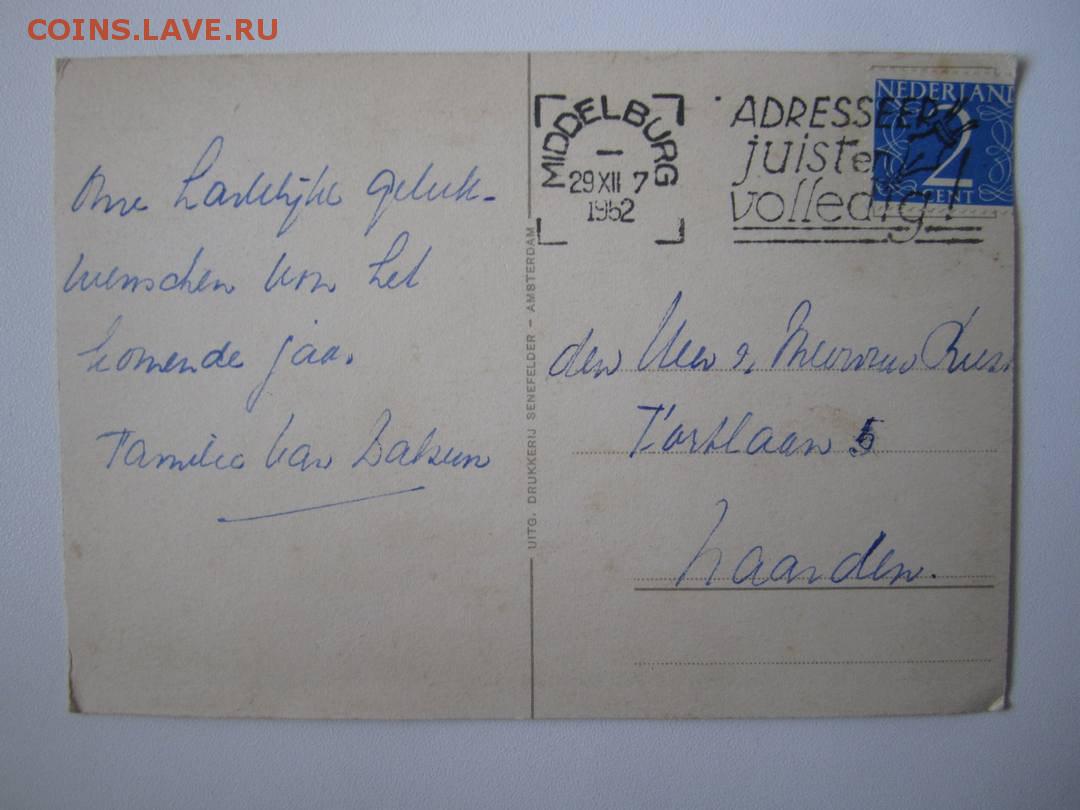 COINS.LAVE.RU
Onze hartelijke geluk-
wenschen voor het
komende jaar.
Familie van
UITG. DRUKKERIJ SENEFELDER – AMSTERDAM
MIDDELBURG
29 XII 7
1952
ADRESSEER
juist en
volledig!
NEDERLAND
2
CENT
den Heer & Mevrouw
5
Naarden.